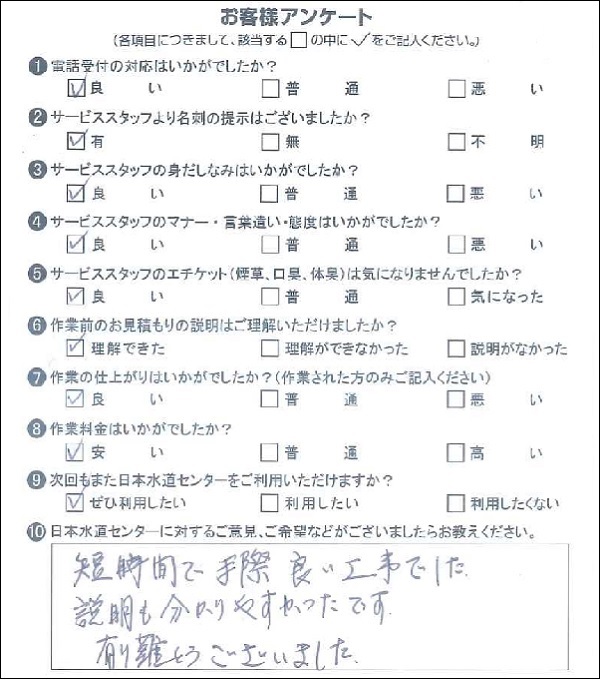 お客様アンケート
(各項目につきまして、該当する□の中に✓をご記入ください。)
❶電話受付の対応はいかがでしたか?
☑良い □普通 □悪い
❷サービススタッフより名刺の提示はございましたか?
☑有 □無 □不明
❸サービススタッフの身だしなみはいかがでしたか?
☑良い □普通 □悪い
❹サービススタッフのマナー・言葉遣い・態度はいかがでしたか?
☑良い □普通 □悪い
❺サービススタッフのエチケット(煙草、口臭、体臭)は気になりませんでしたか?
☑良い □普通 □気になった
❻作業前のお見積もりの説明はご理解いただけましたか?
☑理解できた □理解ができなかった □説明がなかった
❼作業の仕上がりはいかがでしたか?(作業された方のみご記入ください)
☑良い □普通 □悪い
❽作業料金はいかがでしたか?
☑安い □普通 □高い
❾次回もまた日本水道センターをご利用いただけますか?
☑ぜひ利用したい □利用したい □利用したくない
❿日本水道センターに対するご意見、ご希望などがございましたらお教えください。
短時間で手際良い工事でした.
説明も分かりやすかったです.
有り難とうございました.